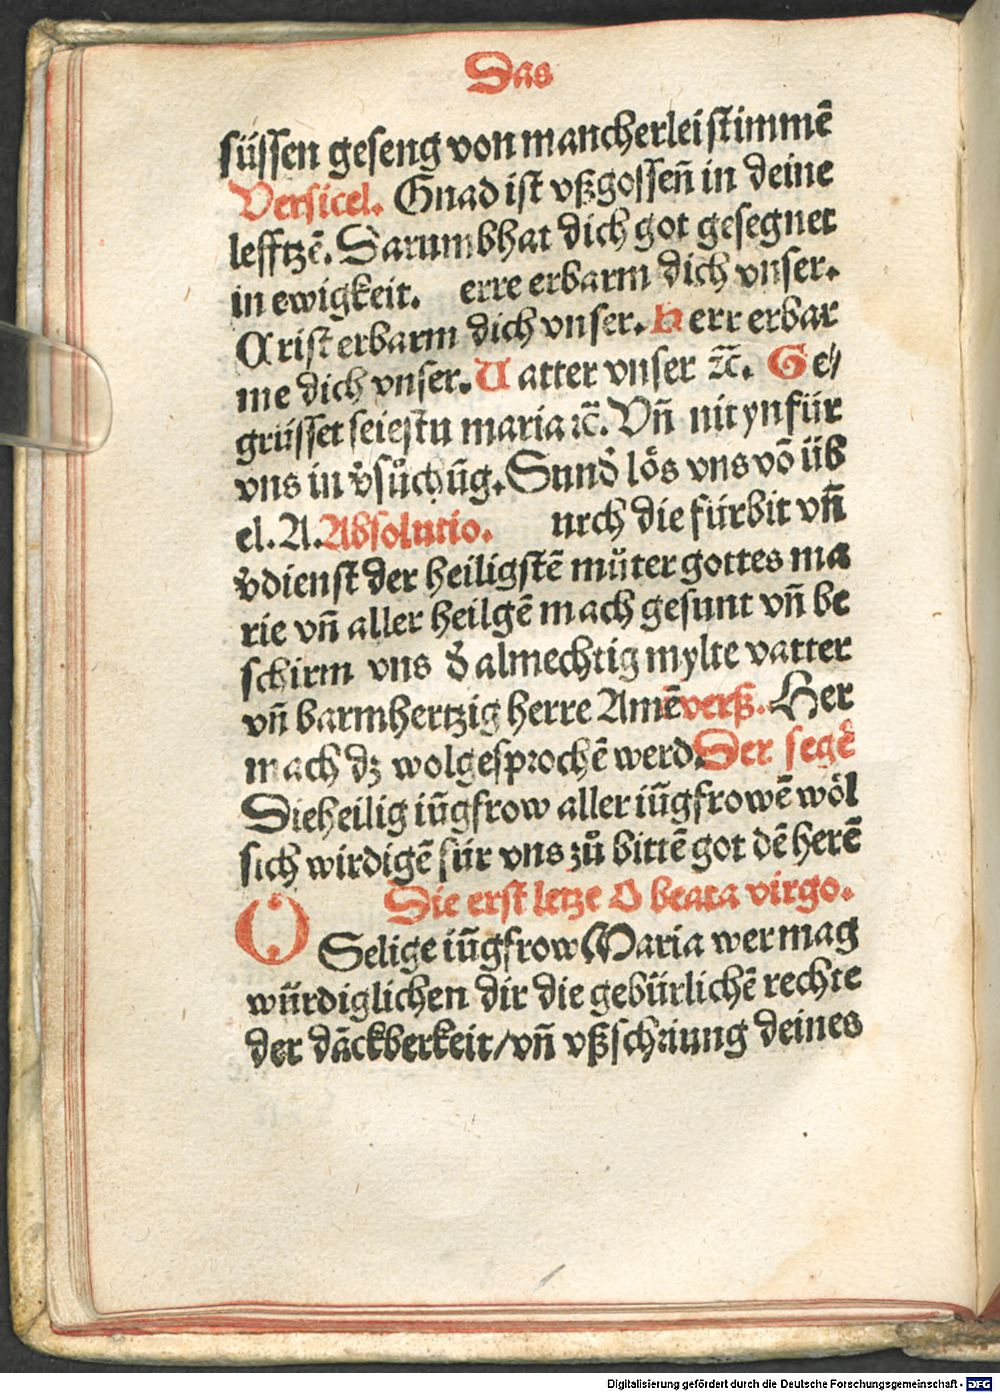 Das
süssen geseng von mancherlei stimmē
Versicel. Gnad ist vßgossen̄ in deine
lefftzē. Darumb hat dich got gesegnet
in ewigkeit. erre erbarm dich vnser.
Crist erbarm dich vnser. Herr erbar
me dich vnser. Vatter vnser ⁊c̄. Ge/
grüsset seiestu maria ⁊c̄. Vn̄ nit ynfür
vns in v̓sůchūg. Sunď lös vns vō üb
el. A. Absolutio. urch die fürbit vn̄
v̓dienst der heiligstē můter gottes ma
rie vn̄ aller heilgē mach gesunt vn̄ be
schirm vns ď almechtig mylte vatter
vn̄ barmhertzig herre Amē verß. Her
mach dz wolgesprochē werd. Der segē
Die heilig iūgfrow aller iūgfrowē wöl
sich wirdigē für vns zů bittē got dē herē
Die erst letze O beata virgo.
O Selige iūgfrow Maria wer mag
würdiglichen dir die gebürlichē rechte
der dāckberkeit/vn̄ vßschriung deines
Digitalisierung gefördert durch die Deutsche Forschungsgemeinschaft - DFG